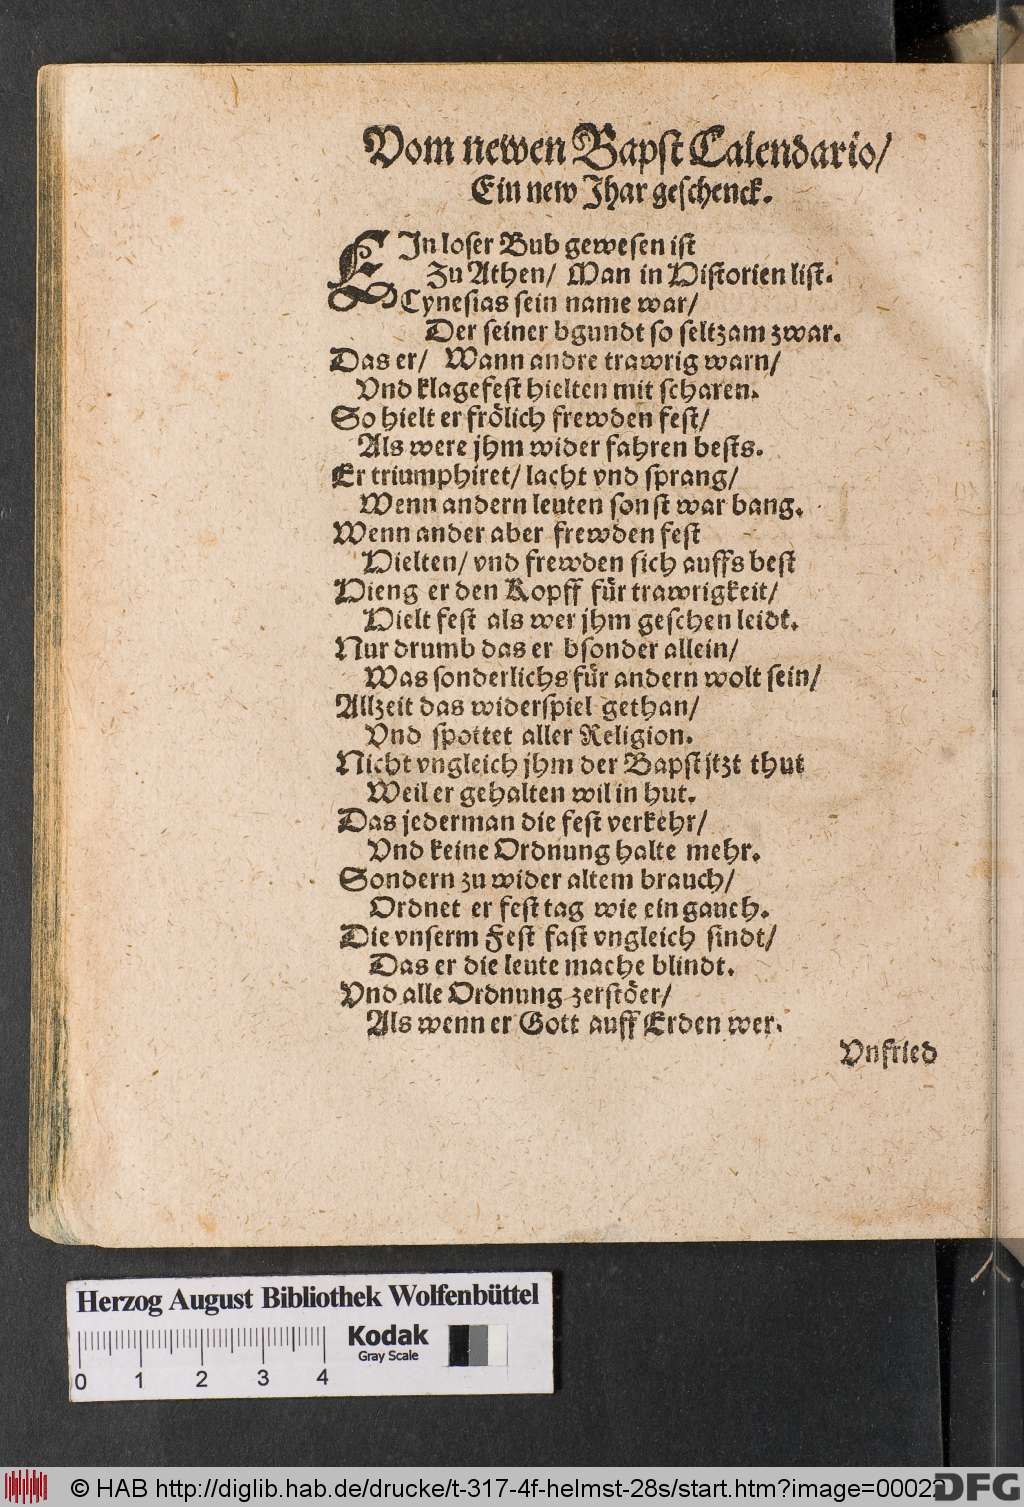 Vom newen Bapst Calendario/
Ein new Jhar geschenck.
EJn loser Bub gewesen ist
Zu Athen/ Man in Historien list.
Cynesias sein name war/
Der seiner bgundt so seltzam zwar.
Das er/ Wann andre trawrig warn/
Vnd klagefest hielten mit scharen.
So hielt er frölich frewden fest/
Als were jhm wider fahren bests.
Er triumphiret/ lacht vnd sprang/
Wenn andern leuten sonst war bang.
Wenn ander aber frewden fest
Hielten/ vnd frewden sich auffs best
Hieng er den Kopff für trawrigkeit/
Hielt fest als wer jhm geschen leidt.
Nur drumb das er bsonder allein/
Was sonderlichs für andern wolt sein/
Allzeit das widerspiel gethan/
Vnd spottet aller Religion.
Nicht vngleich jhm der Bapst jtzt thut
Weil er gehalten wil in hut.
Das jederman die fest verkehr/
Vnd keine Ordnung halte mehr.
Sondern zu wider altem brauch/
Ordnet er fest tag wie ein gauch.
Die vnserm Fest fast vngleich sindt/
Das er die leute mache blindt.
Vnd alle Ordnung zerstöer/
Als wenn er Gott auff Erden wer.
Vnfried
Herzog August Bibliothek Wolfenbüttel
Kodak
Gray Scale
0 1 2 3 4
© HAB http://diglib.hab.de/drucke/t-317-4f-helmst-28s/start.htm?image=00022
DFG